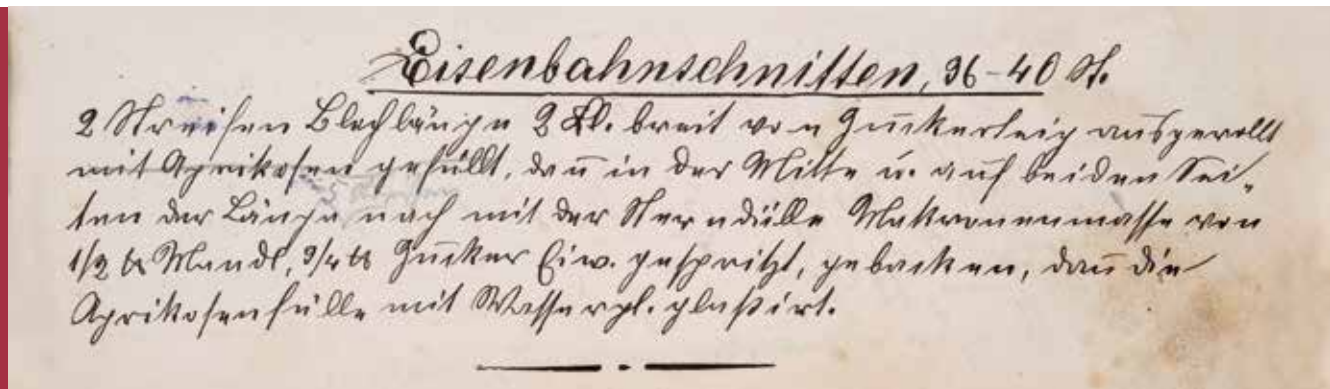 Eisenbahnschnitten, 36-40 St.
2 Streifen Blechlänge 2 Fl. breit von Zuckerteig ausgerollt
mit Aprikosen gefüllt, dañ in der Mitte u. auf beiden Sei-
ten der Länge nach mit der Sterndülle Makronenmasse von
1/2 ℔ Mandl, 3/4 ℔ Zucker Eiw. gespritzt, gebacken, dañ die
Aprikosenfülle mit Wassergl. glaßirt.